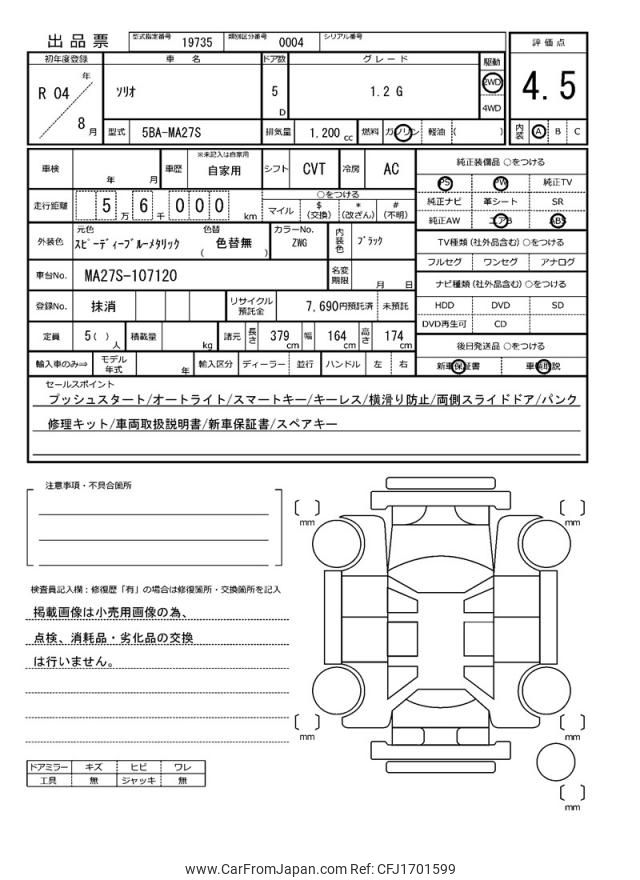 出品票 型式指定番号 19735 類別区分番号 0004 シリアル番号
初年度登録 車名 ドア数 グレード 駆動 評価点
R 04 年 8 月 ソリオ 5 D 1.2 G 2WD 4WD 4.5
型式 5BA-MA27S 排気量 1.200 cc 燃料 ガソリン 軽油 ( ) 内装 A B C
車検 年 月 車歴 ※未記入は自家用 自家用 シフト CVT 冷房 AC 純正装備品 ○をつける
PS PW 純正TV
走行距離 5 万 6 千 0 0 0 km ○をつける
マイル $ (交換) * (改ざん) # (不明)
純正ナビ 革シート SR
純正AW エアB ABS
外装色 元色 スピーディーブルーメタリック 色替 ( 色替無 ) カラーNo. ZWG 内装色 ブラック
TV種類 (社外品含む) ○をつける
フルセグ ワンセグ アナログ
車台No. MA27S-107120 名変期限 月 日
ナビ種類 (社外品含む) ○をつける
登録No. 抹消 リサイクル預託金 7,690円預託済 未預託
HDD DVD SD
DVD再生可 CD
定員 5( ) 人 積載量 kg 諸元 長さ 379 cm 幅 164 cm 高さ 174 cm
後日発送品 ○をつける
輸入車のみ⇒ モデル年式 年 輸入区分 ディーラー 並行 ハンドル 左 右
新車保証書 車輌取説
セールスポイント
プッシュスタート/オートライト/スマートキー/キーレス/横滑り防止/両側スライドドア/パンク
修理キット/車両取扱説明書/新車保証書/スペアキー
注意事項・不具合箇所
検査員記入欄：修復歴「有」の場合は修復箇所・交換箇所を記入
掲載画像は小売用画像の為、
点検、消耗品・劣化品の交換
は行いません。
ドアミラー キズ ヒビ ワレ
工具 無 ジャッキ 無
[ ] mm
[ ] mm
[ ] mm
[ ] mm
[ ] mm
www.CarFromJapan.com Ref: CFJ1701599